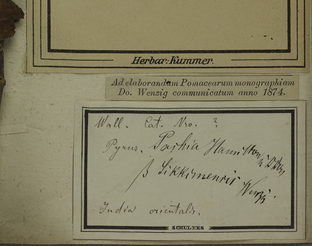 Herbar: Kummer.
Ad elaborandam Pomacearum monographiam
Do. Wenzig communicatum anno 1874.
Wall. Cat. Nro. ?
Pyrus. Pashia Hamilton
β Sikkimensis Wenzig
India orientalis.
SCHULTES